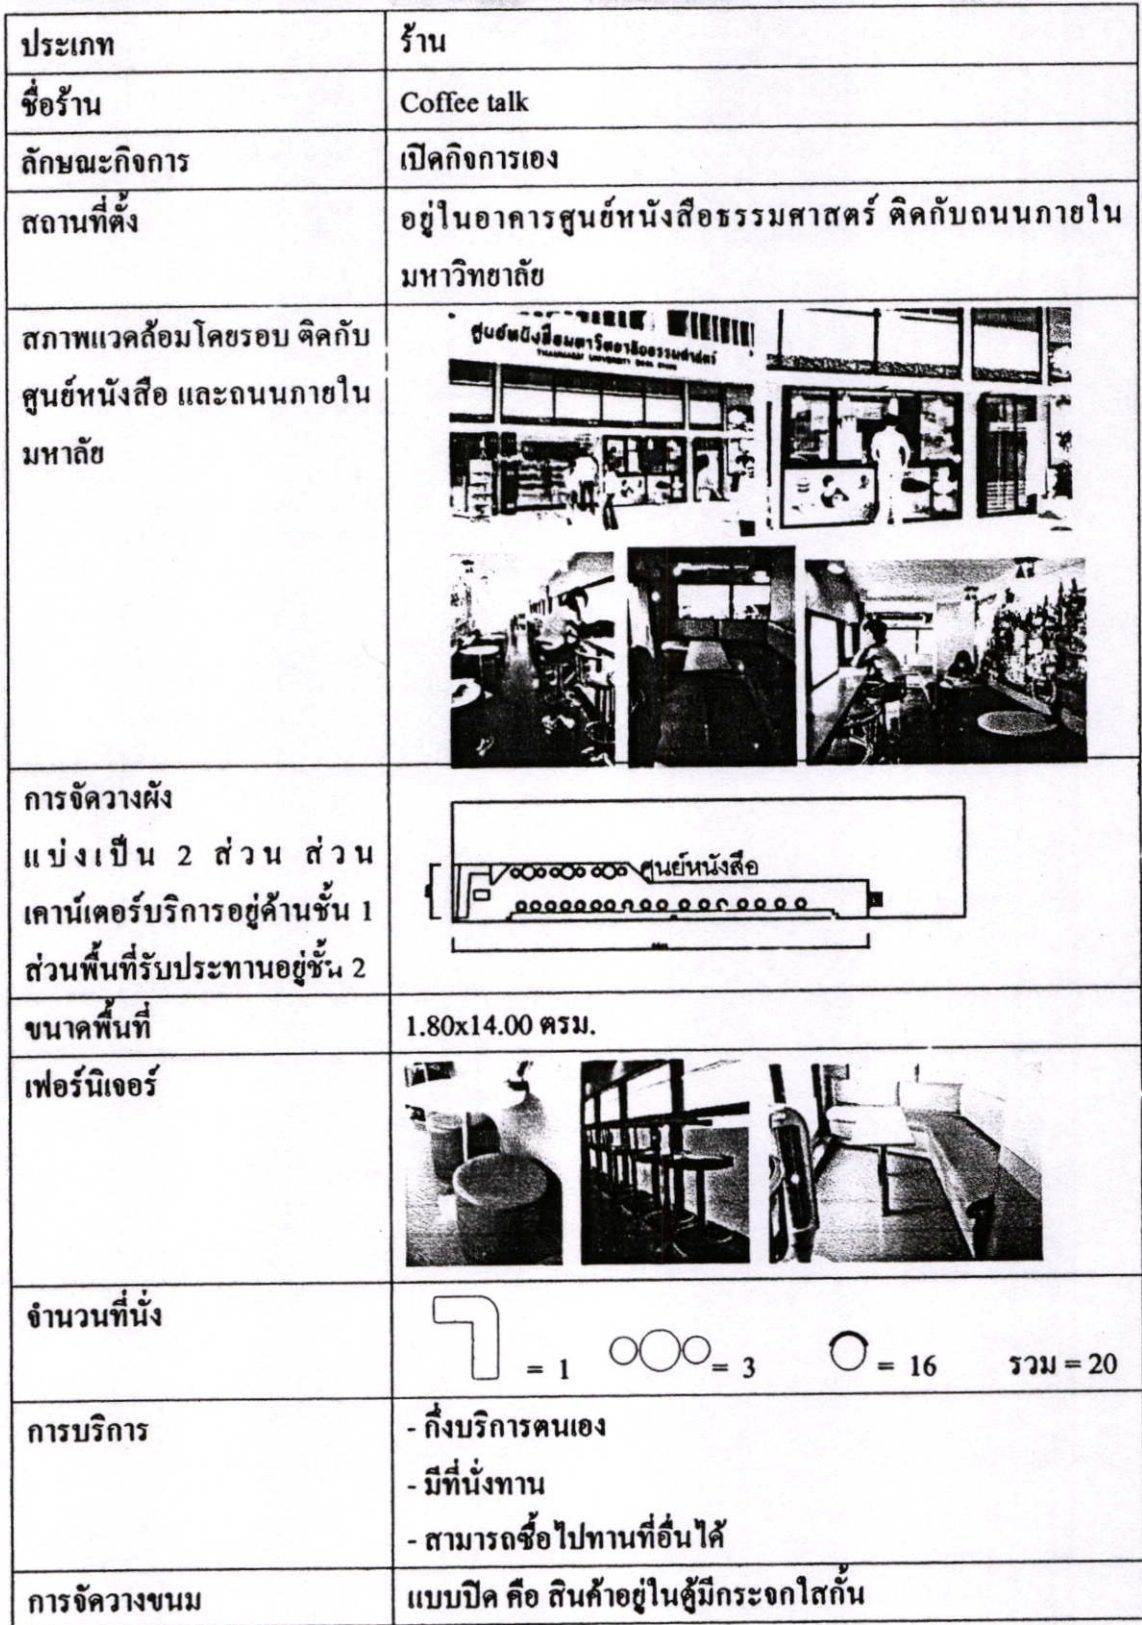 ประเภท
ร้าน
ชื่อร้าน
Coffee talk
ลักษณะกิจการ
เปิดกิจการเอง
สถานที่ตั้ง
อยู่ในอาคารศูนย์หนังสือธรรมศาสตร์ ติดกับถนนภายใน
มหาวิทยาลัย
สภาพแวดล้อมโดยรอบ ติดกับ
ศูนย์หนังสือ และถนนภายใน
มหาลัย
ศูนย์หนังสือมหาวิทยาลัยธรรมศาสตร์
THAMMASAT UNIVERSITY BOOK STORE
การจัดวางผัง
แบ่งเป็น 2 ส่วน ส่วน
เคาน์เตอร์บริการอยู่ด้านชั้น 1
ส่วนพื้นที่รับประทานอยู่ชั้น 2
ศูนย์หนังสือ
ขนาดพื้นที่
1.80x14.00 ตรม.
เฟอร์นิเจอร์
จำนวนที่นั่ง
= 1 = 3 = 16 รวม = 20
การบริการ
- กึ่งบริการตนเอง
- มีที่นั่งทาน
- สามารถซื้อไปทานที่อื่นได้
การจัดวางขนม
แบบปิด คือ สินค้าอยู่ในตู้มีกระจกใสกั้น